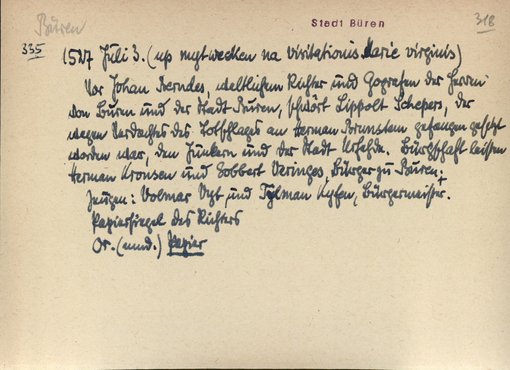 Büren
Stadt Büren
318
335
1527 Juli 3. (up mytwecken na visitationis Marie virginis)
Vor Johan Berndes, weltlichem Richter und Gografen der Herren
von Büren und der Stadt Büren, schwört Lippolt Schepers, der
wegen Verdachtes des Totschlages an Herman Brunstein gefangen gesetzt
worden war, den Junkern und der Stadt Urfehde. Bürgschaft leisten
Herman Kronsen und Gobbert Veringes, Bürger zu Büren.
Zeugen: Volmar Vogt und Tylman Kysen, Bürgermeister.
Papiersiegel des Richters
Or. (nund.) Papier